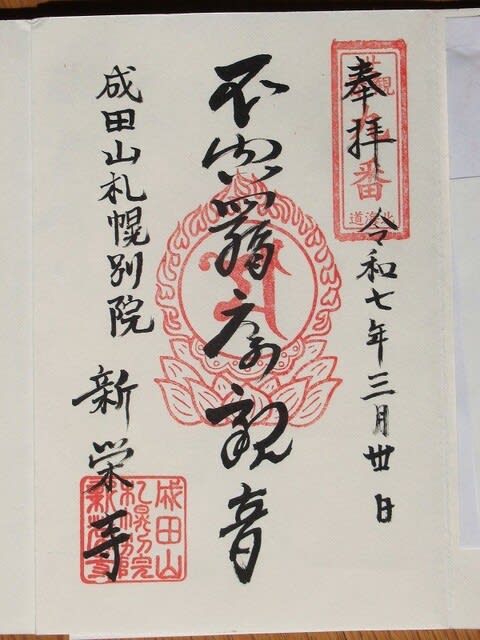 奉拝 令和七年三月卅日
北海道
不空羂索観音
成田山札幌別院 新栄寺
成田山
札幌別院
新栄寺